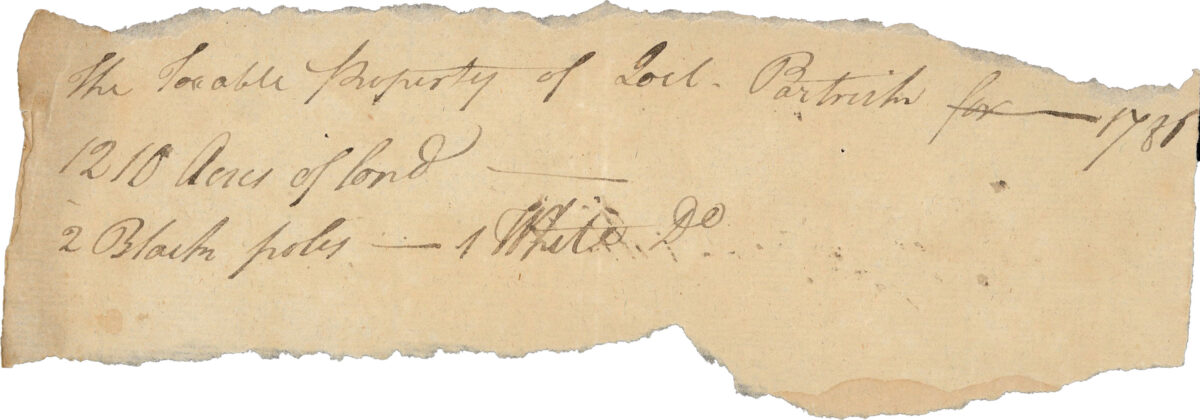 The Taxable Property of Partrich for — 1786
1210 Acres of land —
2 Black poles — 1 White Do